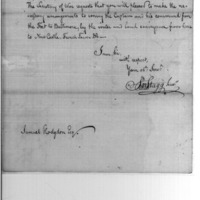 The Secretary of War requests that you will please to make the ne-
cessary arrangements to convey the Captain and his command from
the Fort to Baltimore, by the water and land conveyance from here
to New Castle, French Town &c.
I am Sir,
with respect,
Your Ob. Serv.
Samuel Hodgdon Esqr.